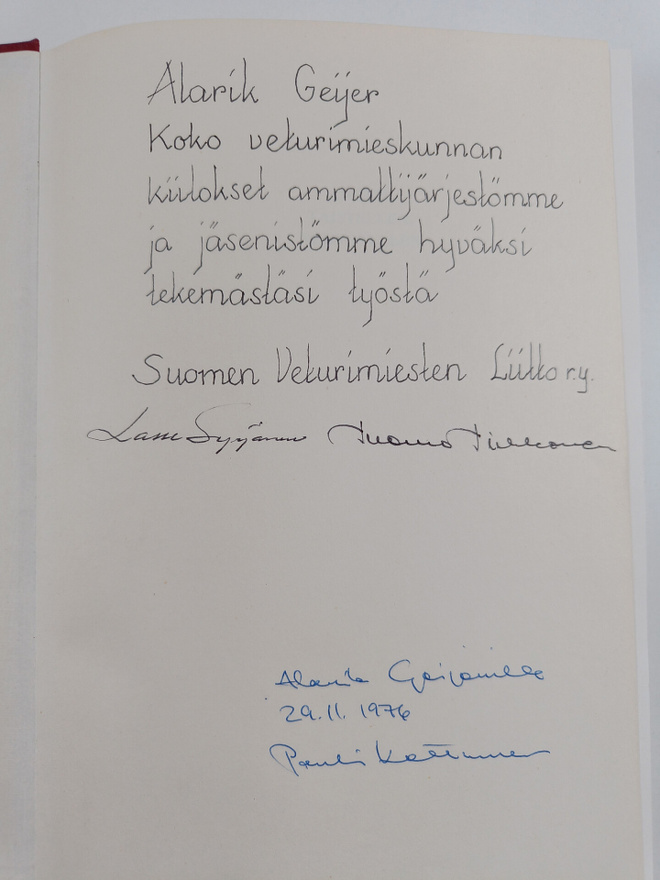 Alarik Geijer
Koko veturimieskunnan
kiitokset ammattijärjestömme
ja jäsenistömme hyväksi
tekemästäsi työstä
Suomen Veturimiesten Liitto r.y.
Lasse Syrjänen Tuomo Tirkkonen
Alarik Geijerille
29.11.1976
Pauli